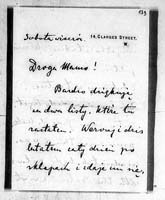 133
14, CLARGES STREET.
Sobota wieczór
Droga Mamo!
Bardzo dziękuję
za dwa listy, które tu
zastałem. Wczoraj i dziś
latałem cały dzień po
sklepach i zdaje mi się,